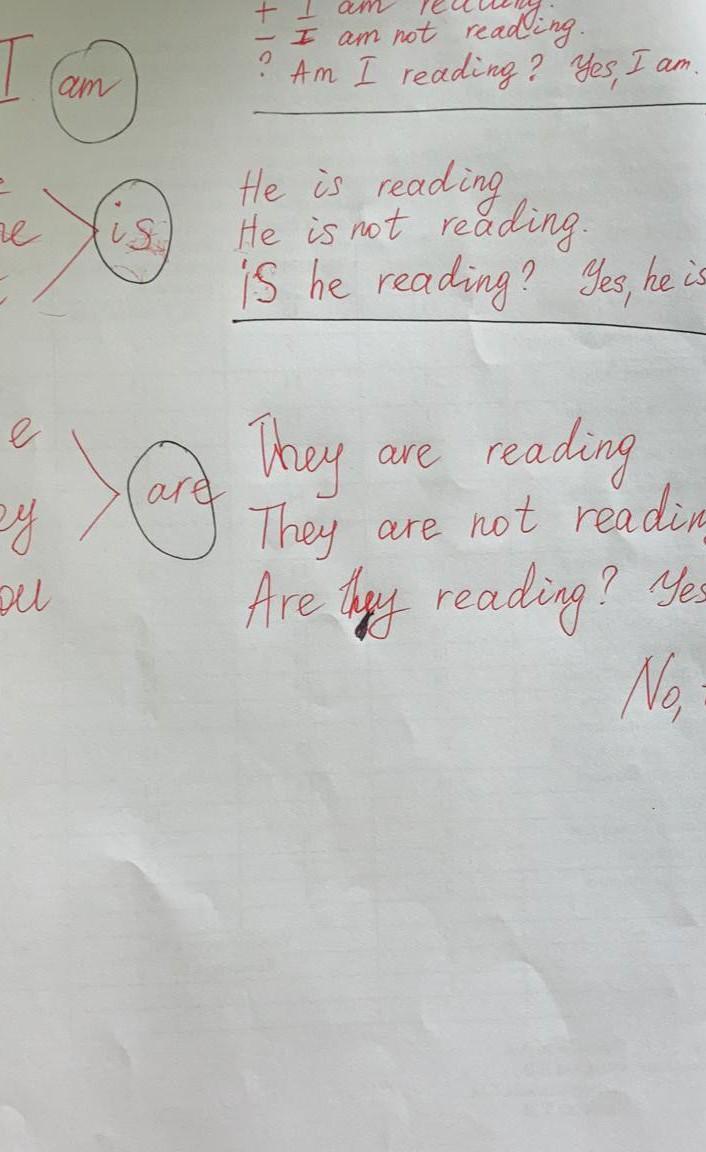 + I am reading.
- I am not reading.
? Am I reading? Yes, I am.
I am
He is reading
is
He is not reading.
iS he reading? Yes, he is
They are reading
are
They are not readin
Are they reading? Yes
No,